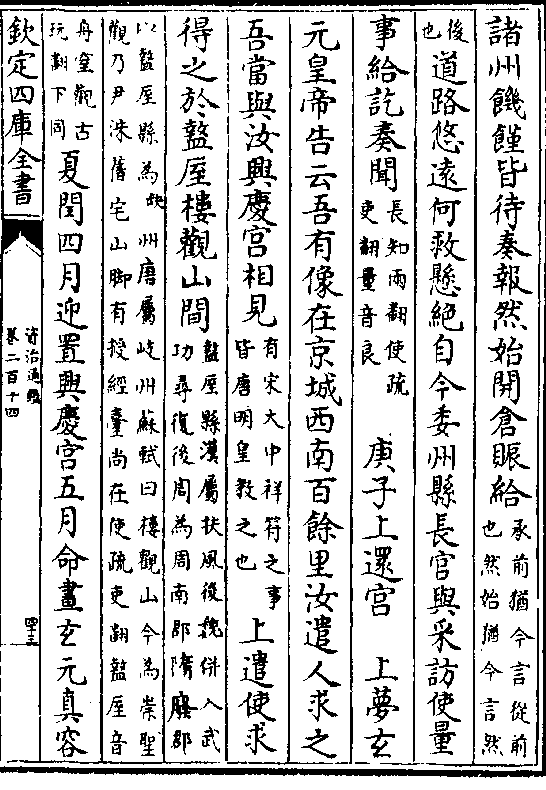 諸州饑饉皆待奏報然始開倉賑給
承前猶今言從前
也然始猶今言然
後
也
道路悠遠何救懸絶自今委州縣長官與采訪使量
事給訖奏聞
長知兩翻使疏
吏翻量音良
庚子上還宫　上夢玄
元皇帝告云吾有像在京城西南百餘里汝遣人求之
吾當與汝興慶宫相見
有宋大中祥符之事
皆唐明皇教之也
上遣使求
得之於盩厔樓觀山間
盩厔縣漢屬扶風後魏併入武
功尋復後周為周南郡隋廢郡
以盩厔縣為州唐屬岐州蘇軾曰樓觀山今為崇聖
觀乃尹洙舊宅山脚有授經臺尚在使疏吏翻盩厔音
舟窒觀古
玩翻下同
夏閏四月迎置興慶宫五月命畫玄元真容
欽定四庫全書
資治通鑑
卷二百十四